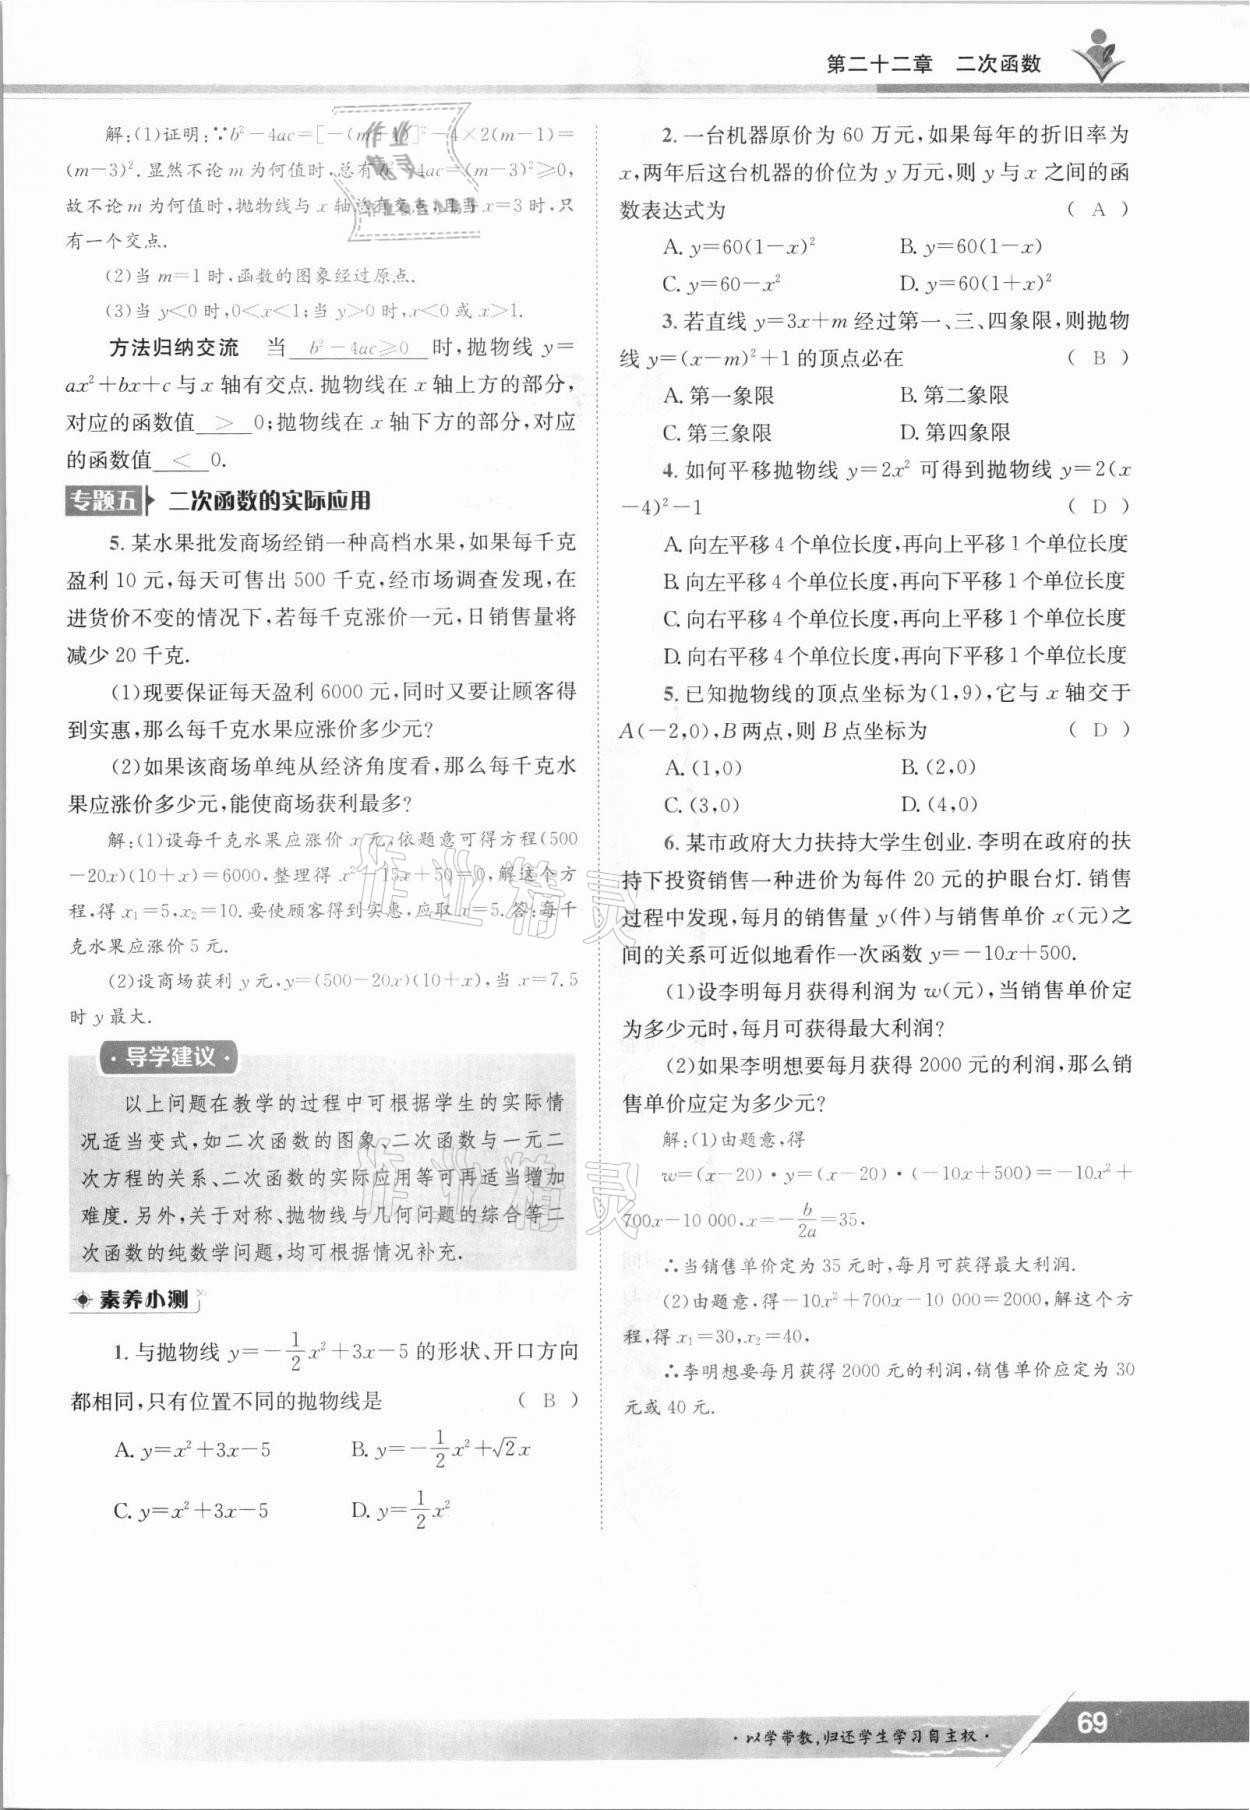 第二十二章 二次函数
解:(1)证明:∵b²-4ac=[-(m+1)]²-4×2(m-1)=
(m-3)².显然不论m为何值时,总有b²-4ac=(m-3)²≥0,
故不论m为何值时,抛物线与x轴总有交点,且当x=3时,只
有一个交点.
(2)当m=1时,函数的图象经过原点.
(3)当y<0时,0<x<1;当y>0时,x<0或x>1.
方法归纳交流 当 b²-4ac≥0 时,抛物线y=
ax²+bx+c与x轴有交点.抛物线在x轴上方的部分,
对应的函数值 > 0;抛物线在x轴下方的部分,对应
的函数值 < 0.
专题五 二次函数的实际应用
5.某水果批发商场经销一种高档水果,如果每千克
盈利10元,每天可售出500千克,经市场调查发现,在
进货价不变的情况下,若每千克涨价一元,日销售量将
减少20千克.
(1)现要保证每天盈利6000元,同时又要让顾客得
到实惠,那么每千克水果应涨价多少元?
(2)如果该商场单纯从经济角度看,那么每千克水
果应涨价多少元,能使商场获利最多?
解:(1)设每千克水果应涨价x元,依题意可得方程(500
-20x)(10+x)=6000,整理得x²-15x+50=0,解这个方
程,得x₁=5,x₂=10.要使顾客得到实惠,应取x=5.答:每千
克水果应涨价5元.
(2)设商场获利y元,y=(500-20x)(10+x),当x=7.5
时y最大.
·导学建议·
以上问题在教学的过程中可根据学生的实际情
况适当变式,如二次函数的图象、二次函数与一元二
次方程的关系、二次函数的实际应用等可再适当增加
难度.另外,关于对称、抛物线与几何问题的综合等二
次函数的纯数学问题,均可根据情况补充.
素养小测
1.与抛物线y=-1/2x²+3x-5的形状、开口方向
都相同,只有位置不同的抛物线是 ( B )
A.y=x²+3x-5 B.y=-1/2x²+√2x
C.y=x²+3x-5 D.y=1/2x²
2.一台机器原价为60万元,如果每年的折旧率为
x,两年后这台机器的价位为y万元,则y与x之间的函
数表达式为 ( A )
A.y=60(1-x)² B.y=60(1-x)
C.y=60-x² D.y=60(1+x)²
3.若直线y=3x+m经过第一、三、四象限,则抛物
线y=(x-m)²+1的顶点必在 ( B )
A.第一象限 B.第二象限
C.第三象限 D.第四象限
4.如何平移抛物线y=2x²可得到抛物线y=2(x
-4)²-1 ( D )
A.向左平移4个单位长度,再向上平移1个单位长度
B.向左平移4个单位长度,再向下平移1个单位长度
C.向右平移4个单位长度,再向上平移1个单位长度
D.向右平移4个单位长度,再向下平移1个单位长度
5.已知抛物线的顶点坐标为(1,9),它与x轴交于
A(-2,0),B两点,则B点坐标为 ( D )
A.(1,0) B.(2,0)
C.(3,0) D.(4,0)
6.某市政府大力扶持大学生创业.李明在政府的扶
持下投资销售一种进价为每件20元的护眼台灯.销售
过程中发现,每月的销售量y(件)与销售单价x(元)之
间的关系可近似地看作一次函数y=-10x+500.
(1)设李明每月获得利润为w(元),当销售单价定
为多少元时,每月可获得最大利润?
(2)如果李明想要每月获得2000元的利润,那么销
售单价应定为多少元?
解:(1)由题意,得
w=(x-20)·y=(x-20)·(-10x+500)=-10x²+
700x-10 000,x=-b/2a=35,
∴当销售单价定为35元时,每月可获得最大利润.
(2)由题意,得-10x²+700x-10 000=2000,解这个方
程,得x₁=30,x₂=40,
∴李明想要每月获得2000元的利润,销售单价应定为30
元或40元.
作业精灵
作业精灵
·以学带教,归还学生学习自主权·
69